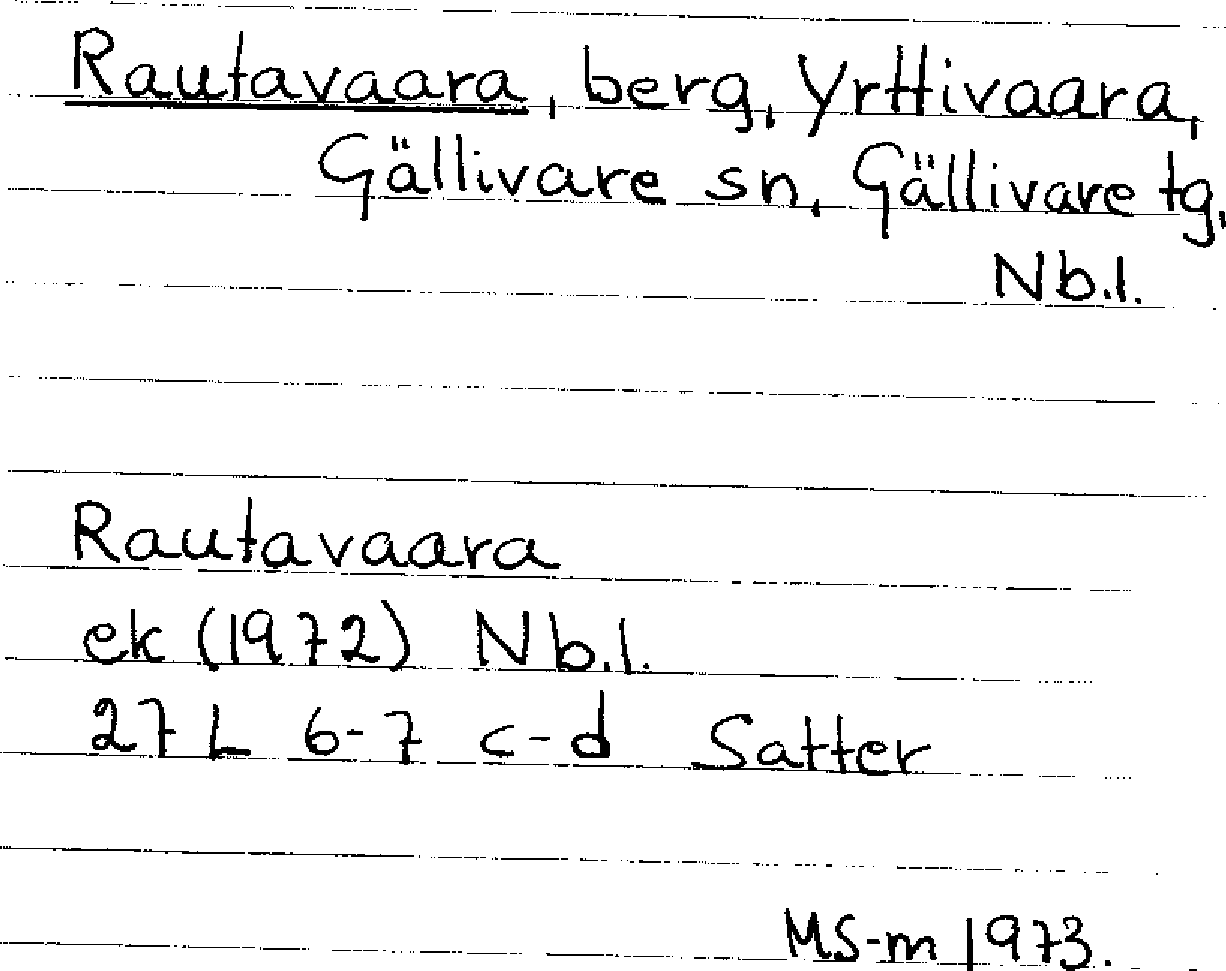 Rautavaara, berg, Yrttivaara,
Gällivare sn, Gällivare tg,
Nb.l.
Rautavaara
ek (1972) Nb.l.
27 L 6-7 c-d Satter
MS-m 1973.